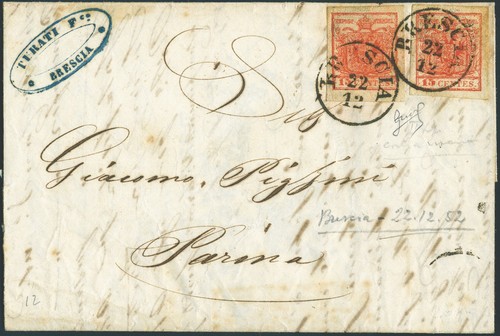 TURATI F.
BRESCIA
15 CENTES.
15 CENTES.
BRESCIA
22
12
BRESCIA
22
12
Sig
Giacomo
Brescia - 22.12.52
Parma
12